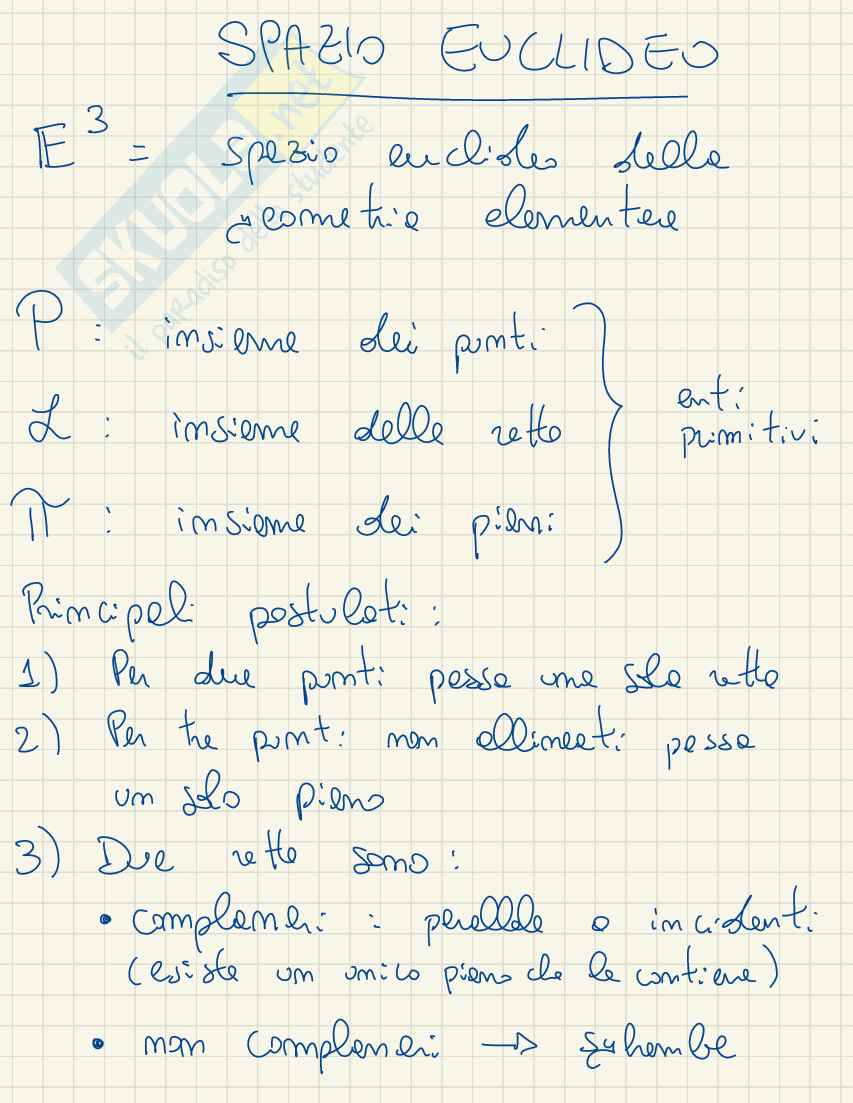 SPAZIO EUCLIDEO
E³ = spazio euclideo della
geometria elementare
P : insieme dei punti
L : insieme delle rette
π : insieme dei piani
enti
primitivi
Principali postulati :
1) Per due punti passa una sola retta
2) Per tre punti non allineati passa
un solo piano
3) Due rette sono :
• complanari : parallele o incidenti
(esiste un unico piano che le contiene)
• non complanari → sghembe
SKUOLA.net
il paradiso dello studente